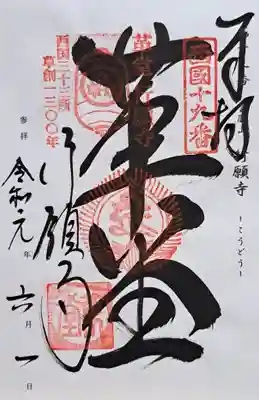 奉拝
西國十九番
革堂
行願寺
ーこうどうー
西国三十三所
草創一三〇〇年
行願寺
参拝
令和元年六月一日